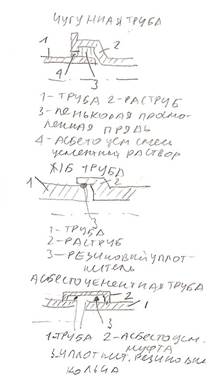 ЧУГУННАЯ ТРУБА
1 2
4 3
1-ТРУБА 2-РАСТРУБ
3-ПЕНЬКОВАЯ ПРОСМО-
ЛЕННАЯ ПРЯДЬ
4-АСБЕСТОЦЕМ СМЕСЬ
ЦЕМЕНТНЫЙ РАСТВОР
Ж/Б ТРУБА
1 2
3
1-ТРУБА
2-РАСТРУБ
3-РЕЗИНОВЫЙ УПЛОТ-
НИТЕЛЬ
АСБЕСТОЦЕМЕНТНАЯ ТРУБА
2
1
3
1.ТРУБА 2-АСБЕСТОЦЕМ.
МУФТА
3.УПЛОТНИТ. РЕЗИНОВЫЕ
КОЛЬЦА